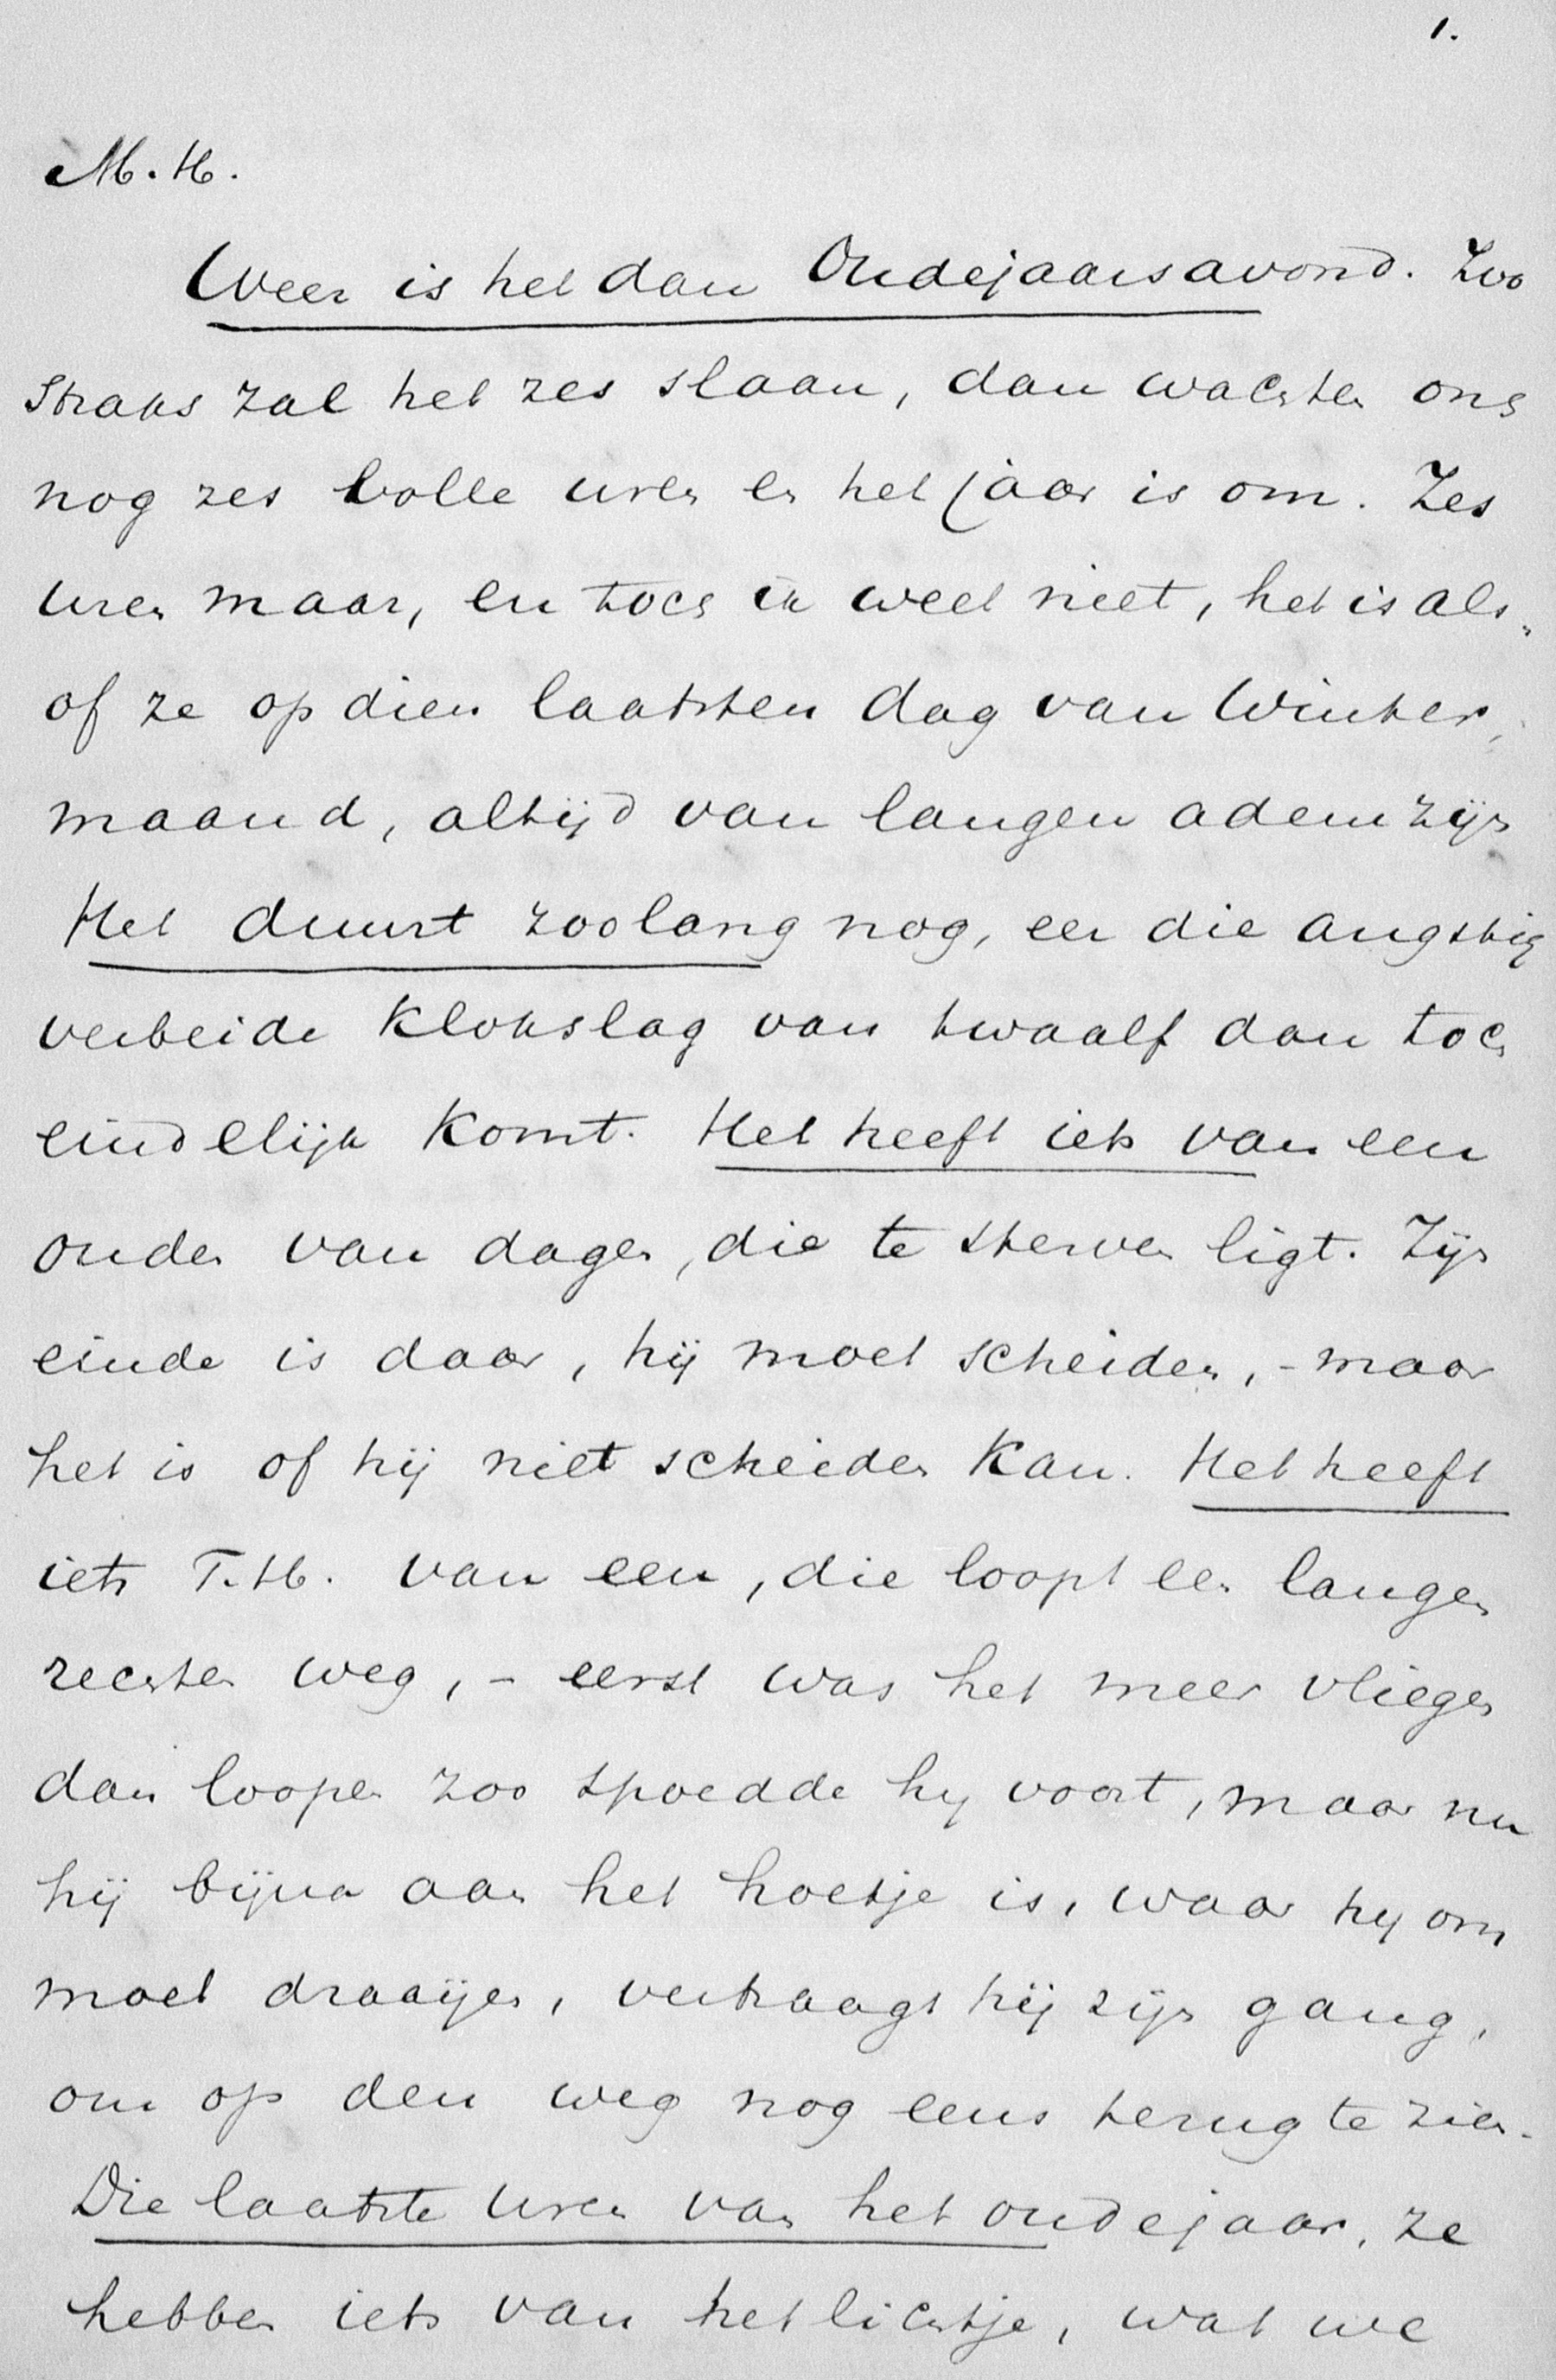 1.
M. H.
Weer is het dan Oudejaarsavond. Zoo
straks zal het zes slaan, dan wachten ons
nog zes volle uren en het jaar is om. Zes
uren maar, en toch ik weet niet, het is als„
of ze op dien laatsten dag van Winter„
maand, altijd van langen adem zijn
Het duurt zoolang nog, eer die angstig
verbeide klokslag van twaalf dan toch
eindelijk komt. Het heeft iets van een
ouden van dagen, die te sterven ligt. Zijn
einde is daar, hij moet scheiden, - maar
het is of hij niet scheiden kan. Het heeft
iets T. H. van een, die loopt een langen
rechten weg, - eerst was het meer vliegen
dan loopen zoo spoedde hij voort, maar nu
hij bijna aan het hoekje is, waar hij om
moet draaijen, vertraagt hij zijn gang,
om op den weg nog eens terug te zien.
Die laatste uren van het oudejaar, ze
hebben iets van het lichtje, wat we